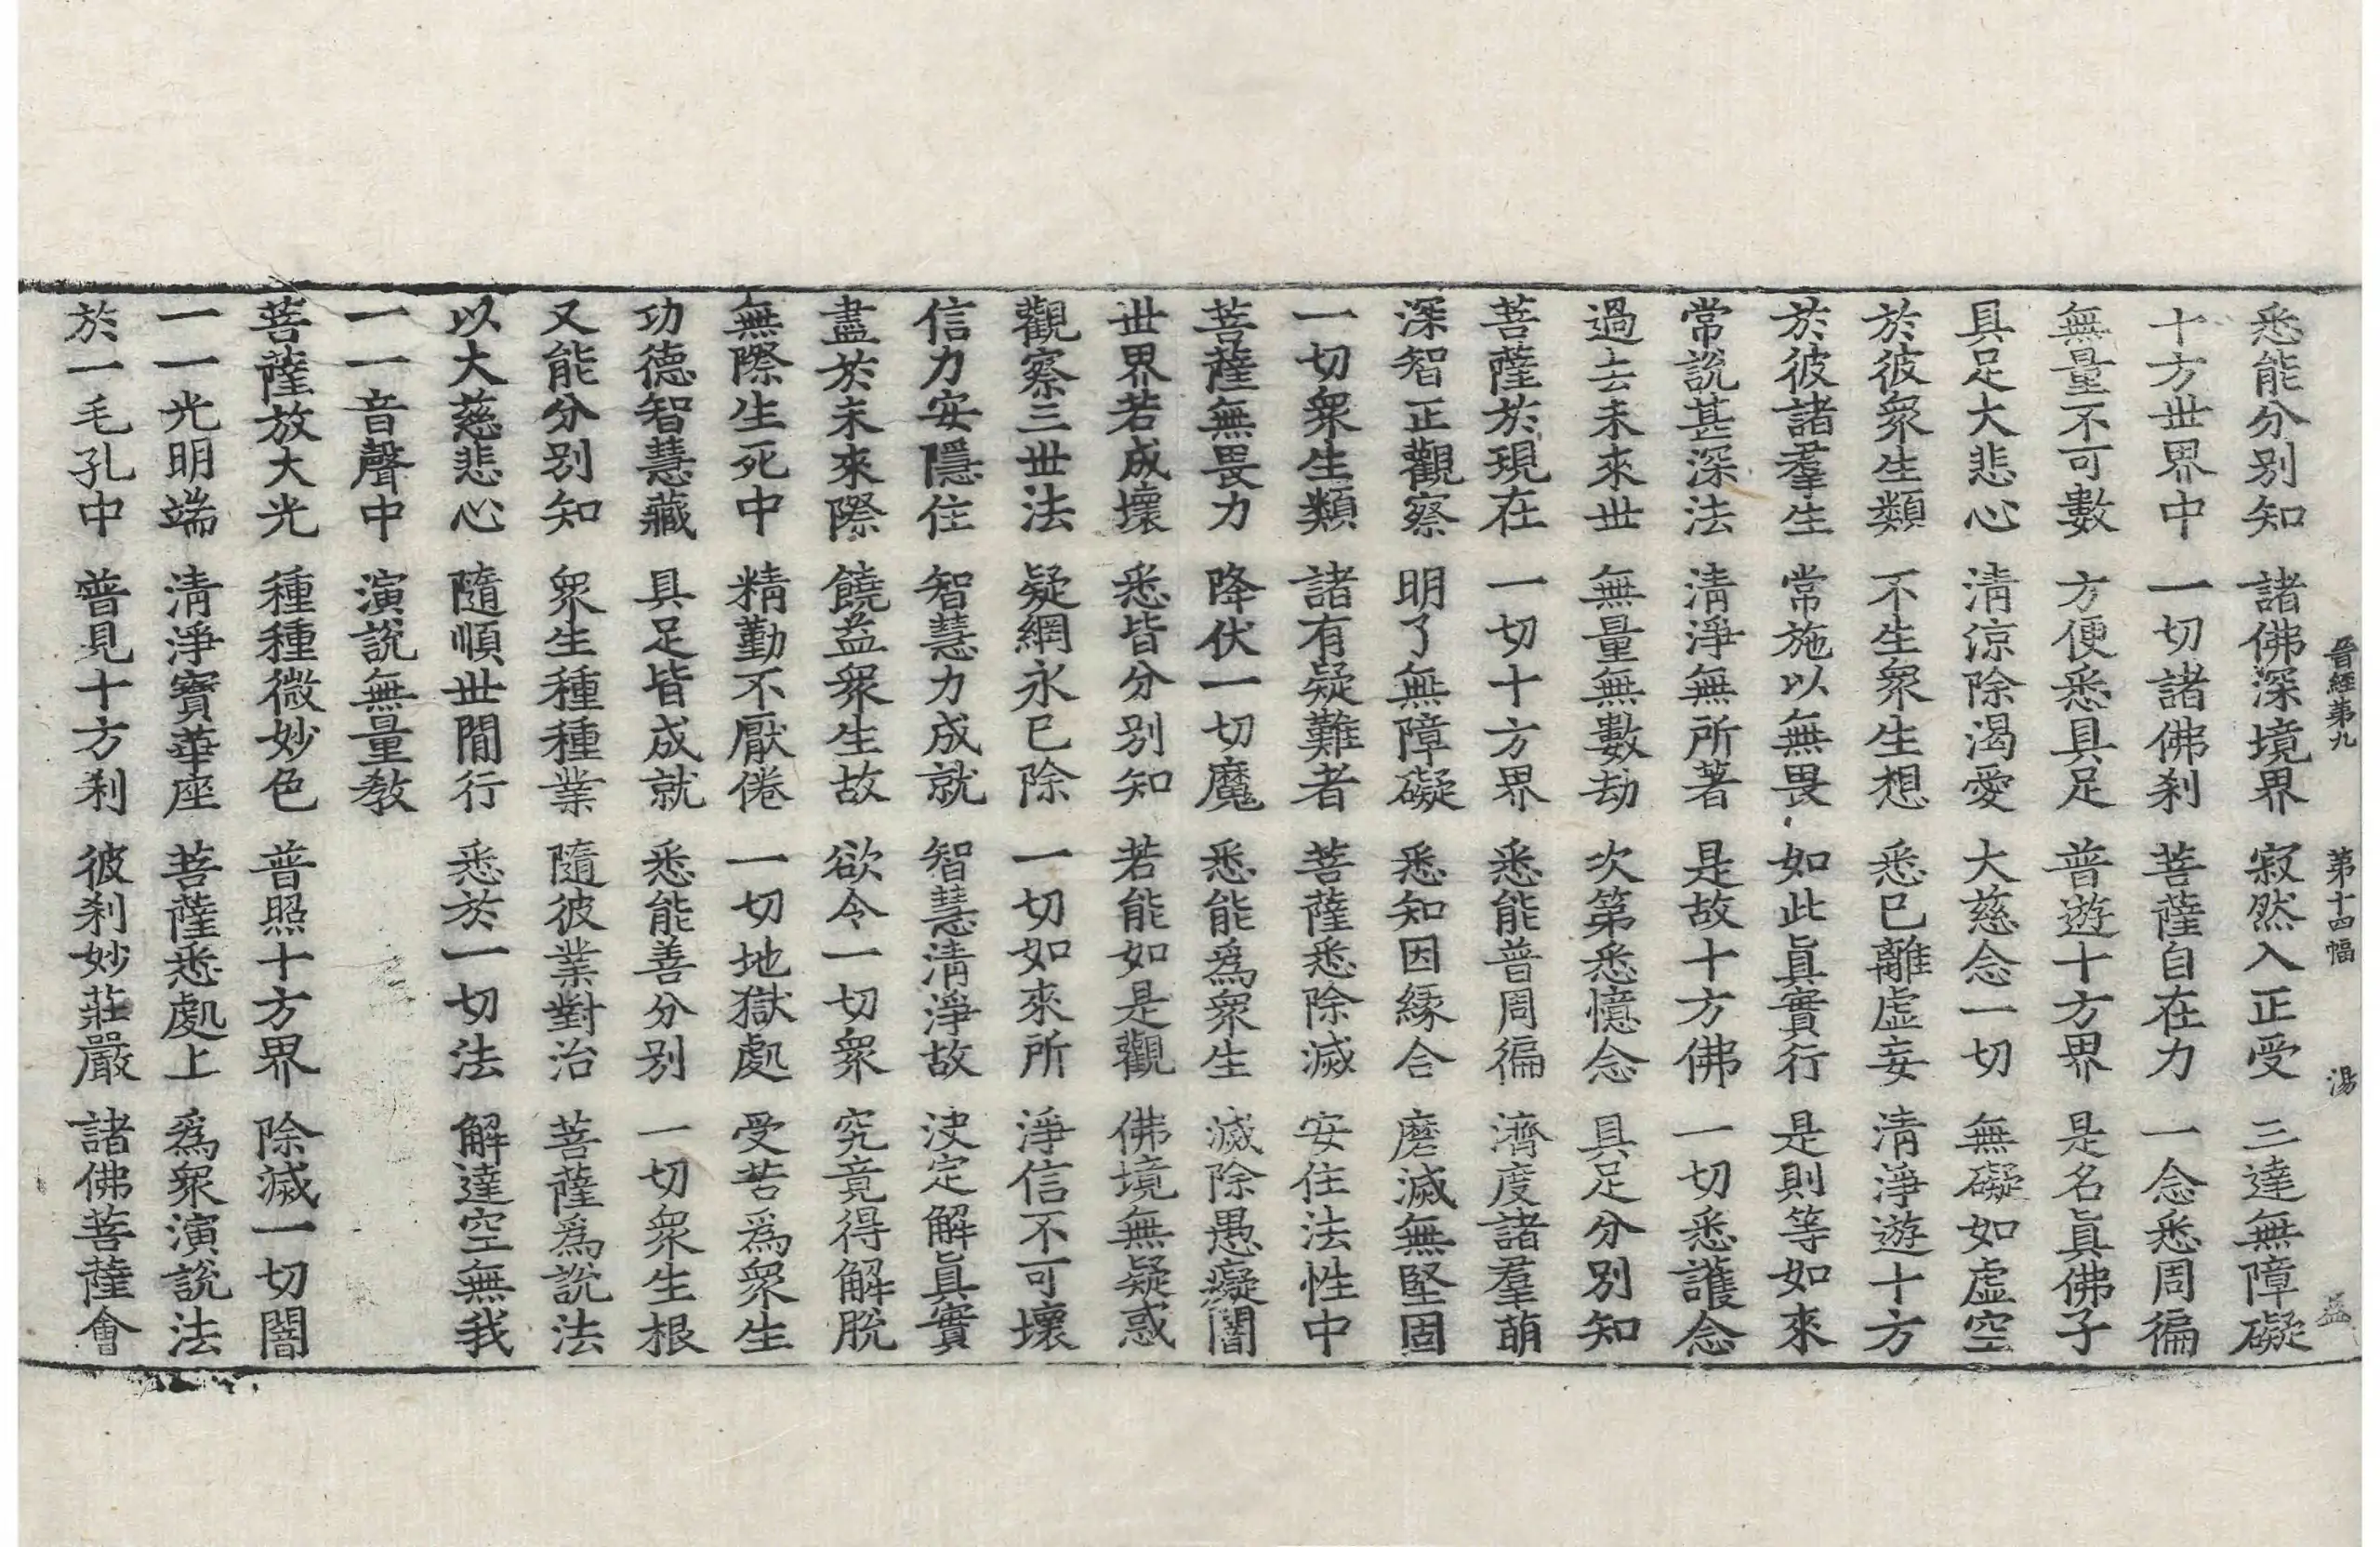 晉經第九 第十四幅 湯 益
悉能分别知 諸佛深境界 寂然入正受 三達無障礙
十方世界中 一切諸佛刹 菩薩自在力 一念悉周徧
無量不可數 方便悉具足 普遊十方界 是名眞佛子
具足大悲心 清涼除渴愛 大慈念一切 無礙如虛空
於彼衆生類 不生衆生想 悉已離虛妄 清淨遊十方
於彼諸羣生 常施以無畏 如此眞實行 是則等如來
常說甚深法 清淨無所著 是故十方佛 一切悉護念
過去未來世 無量無數劫 次第悉憶念 具足分别知
菩薩於現在 一切十方界 悉能普周徧 濟度諸羣萌
深智正觀察 明了無障礙 悉知因緣合 磨滅無堅固
一切衆生類 諸有疑難者 菩薩悉除滅 安住法性中
菩薩無畏力 降伏一切魔 悉能爲衆生 滅除愚癡闇
世界若成壞 悉皆分别知 若能如是觀 佛境無疑惑
觀察三世法 疑網永已除 一切如來所 淨信不可壞
信力安隱住 智慧力成就 智慧清淨故 決定解眞實
盡於未來際 饒益衆生故 欲令一切衆 究竟得解脫
無際生死中 精勤不厭倦 一切地獄處 受苦爲衆生
功德智慧藏 具足皆成就 悉能善分别 一切衆生根
又能分别知 衆生種種業 隨彼業對治 菩薩爲說法
以大慈悲心 隨順世間行 悉於一切法 解達空無我
一一音聲中 演說無量教
菩薩放大光 種種微妙色 普照十方界 除滅一切闇
一一光明端 清淨寶華座 菩薩悉處上 爲衆演說法
於一毛孔中 普見十方刹 彼刹妙莊嚴 諸佛菩薩會